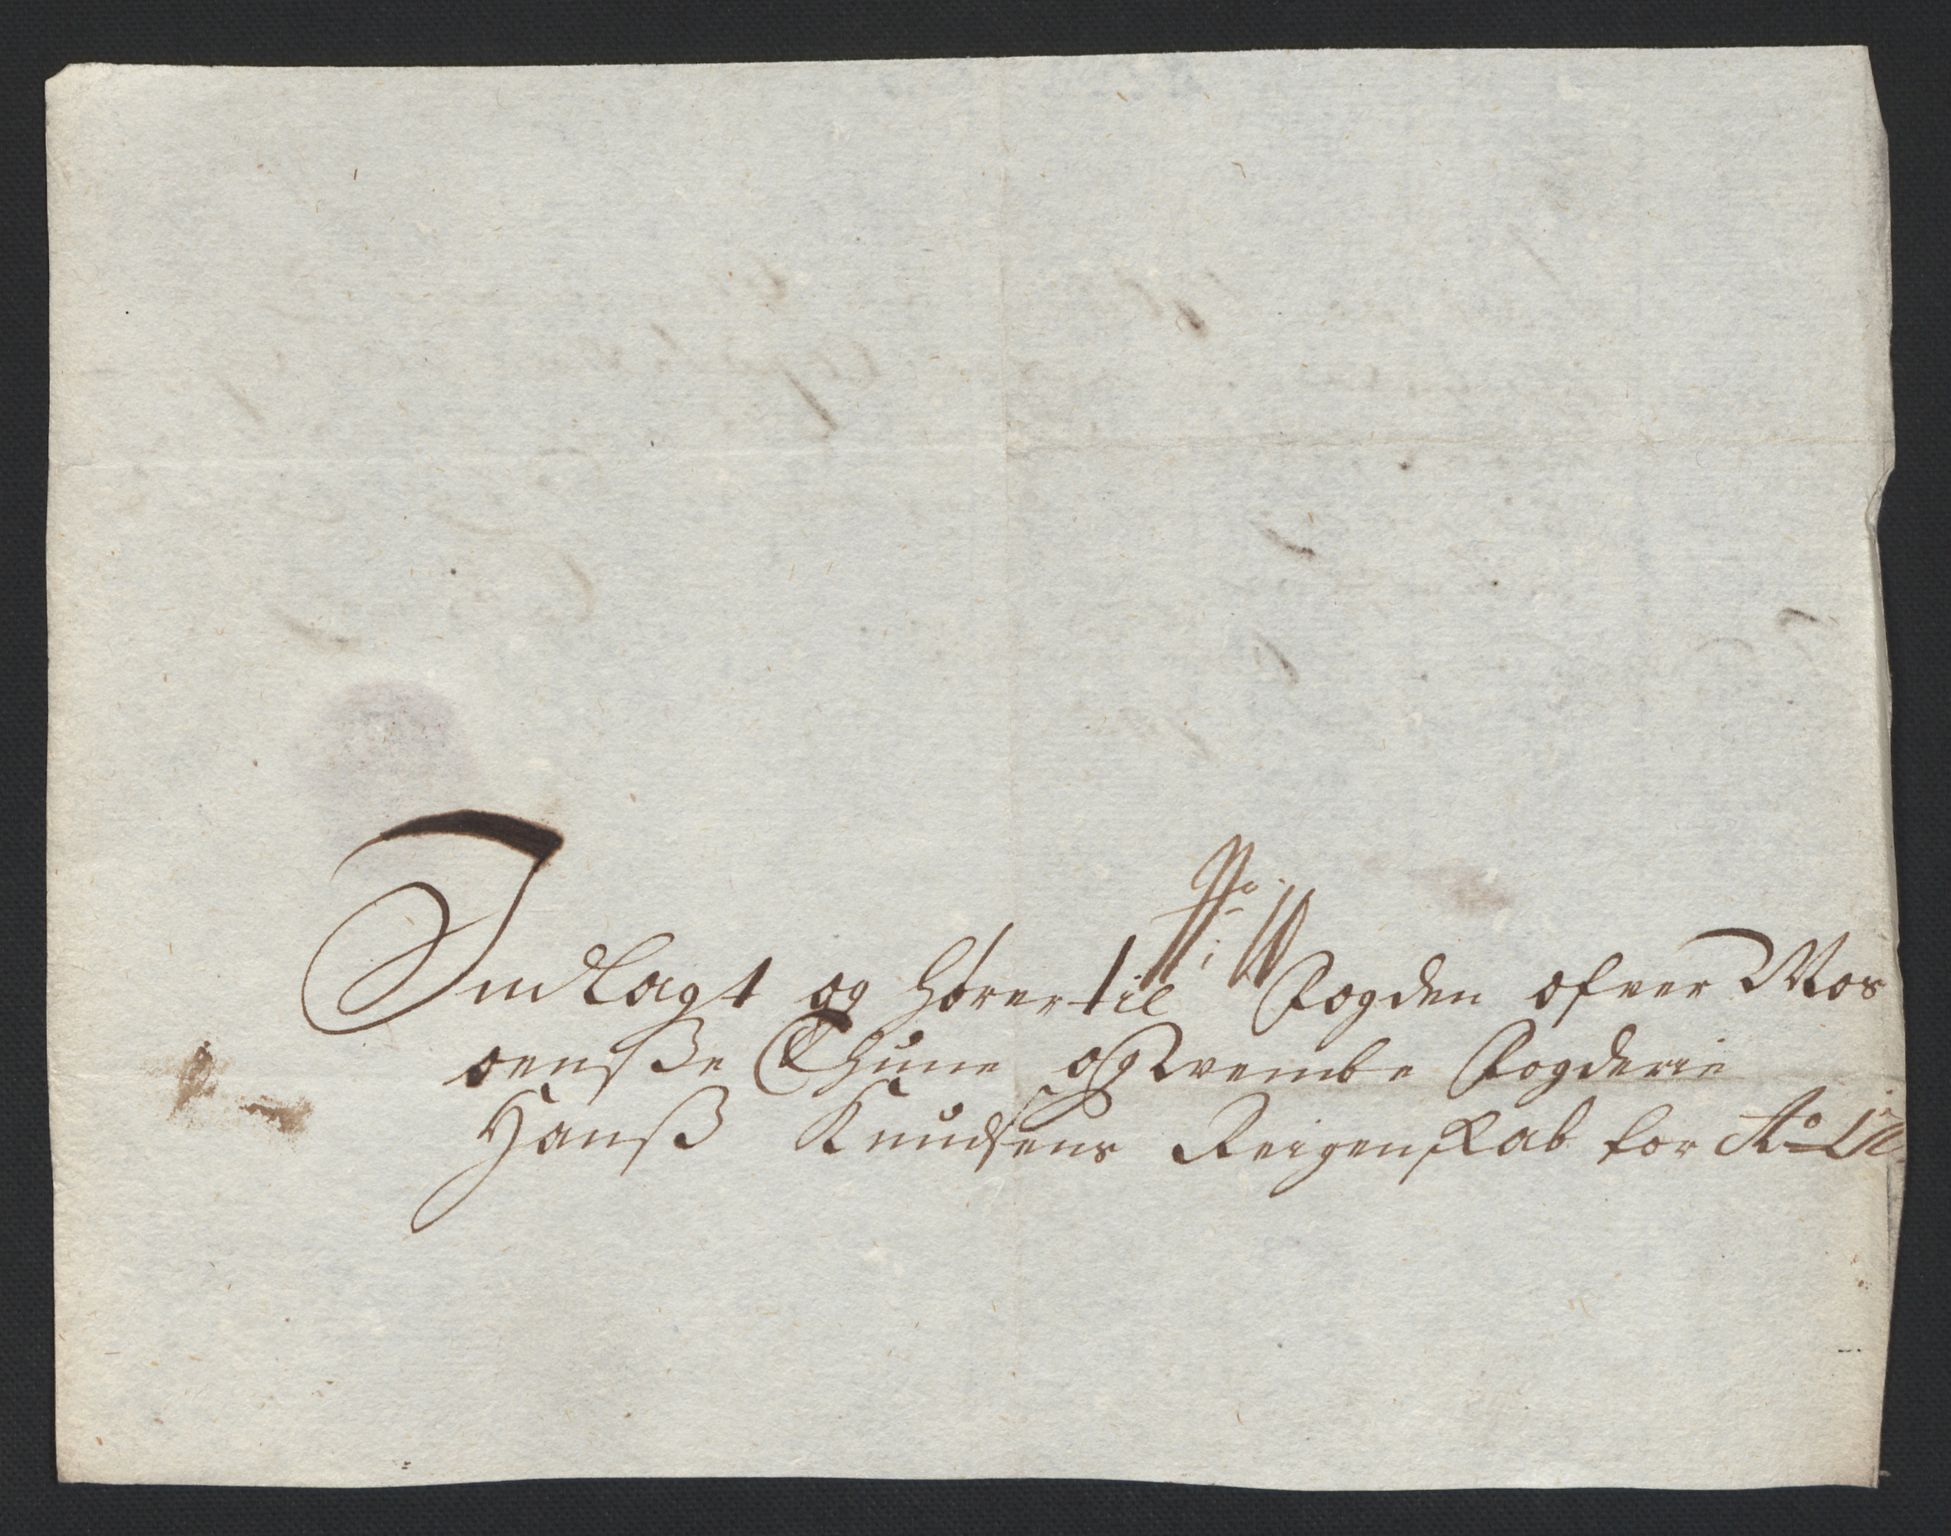 No: 10
Indlagt og hører til Fogden ofver Mos
oensße Thune og Vembe Fogderie
Hanß Knudsens Reigenskab for Ao 17